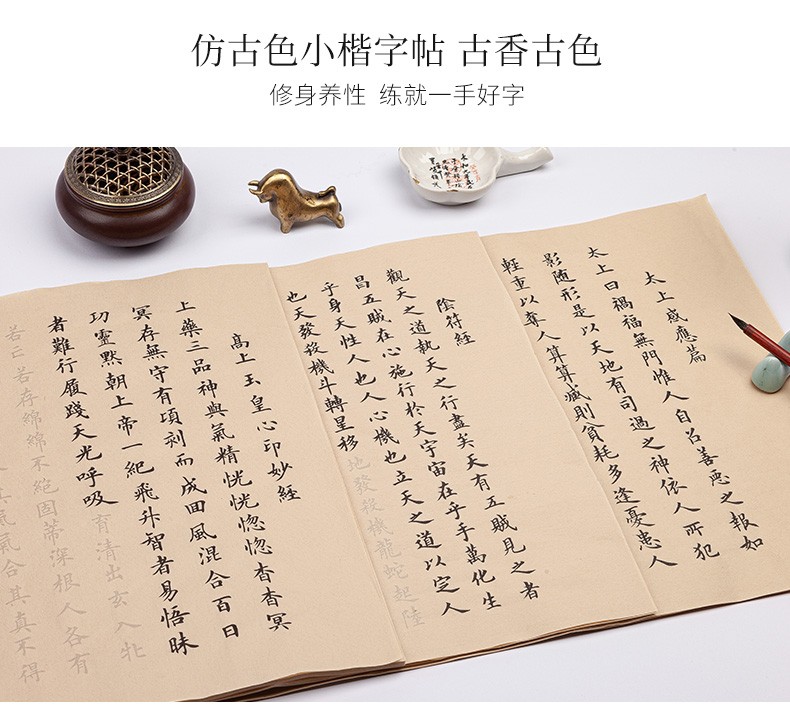 仿古色小楷字帖 古香古色
修身养性 练就一手好字
太上感應篇
太上曰禍福無門惟人自召善惡之報如
影随形是以天地有司過之神依人所犯
輕重以奪人算算減則貧耗多逢憂患人
陰符經
觀天之道執天之行盡矣天有五賊見之者
昌五賊在心施行於天宇宙在乎手萬化生
乎身天性人也人心機也立天之道以定人
也天發殺機斗轉星移地發殺機龍蛇起陸
高上玉皇心印妙經
上藥三品神與氣精恍恍惚惚杳杳冥
冥存無守有頃刻而成回風混合百日
功靈默朝上帝一紀飛升智者易悟昧
者難行履踐天光呼吸育清出玄入牝
若亡若存綿綿不絕固蒂深根人各有
氣合其真不得